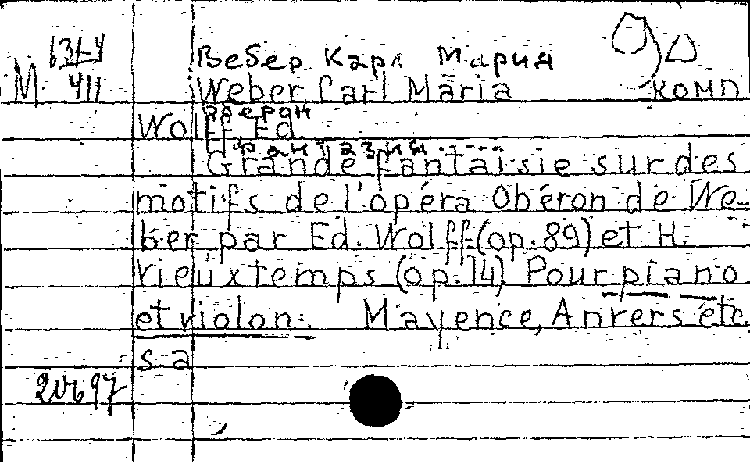 Вебер Карл Мария
М 411 Weber Carl Maria комп
Wolff Ed.
Grande fantaisie sur des
motifs de l'opéra Obéron de We-
ber par Ed. Wolff (op. 89) et H.
Vieuxtemps (op. 14) Pour piano
et violon. Mayence, Anvers etc.
s a